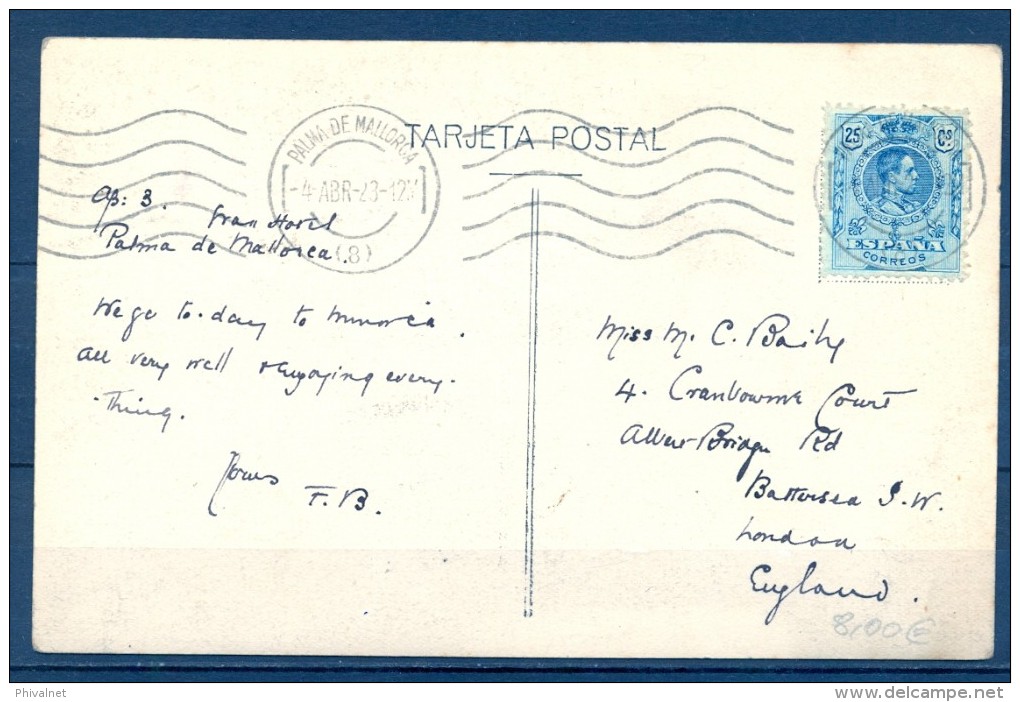 TARJETA POSTAL
PALMA DE MALLORCA
-4·ABR·23-12M
(.8)
25 Cs
ESPAÑA
CORREOS
Ap: 3.
Gran Hotel
Palma de Mallorca
We go to-day to Minorca.
All very well & enjoying every-
-thing.
Yours
F.B.
Miss M. C. Baily
4. Cranbourne Court
Albert Bridge Rd
Battersea S.W.
London
England.
8,00€
Phivalnet
www.delcampe.net